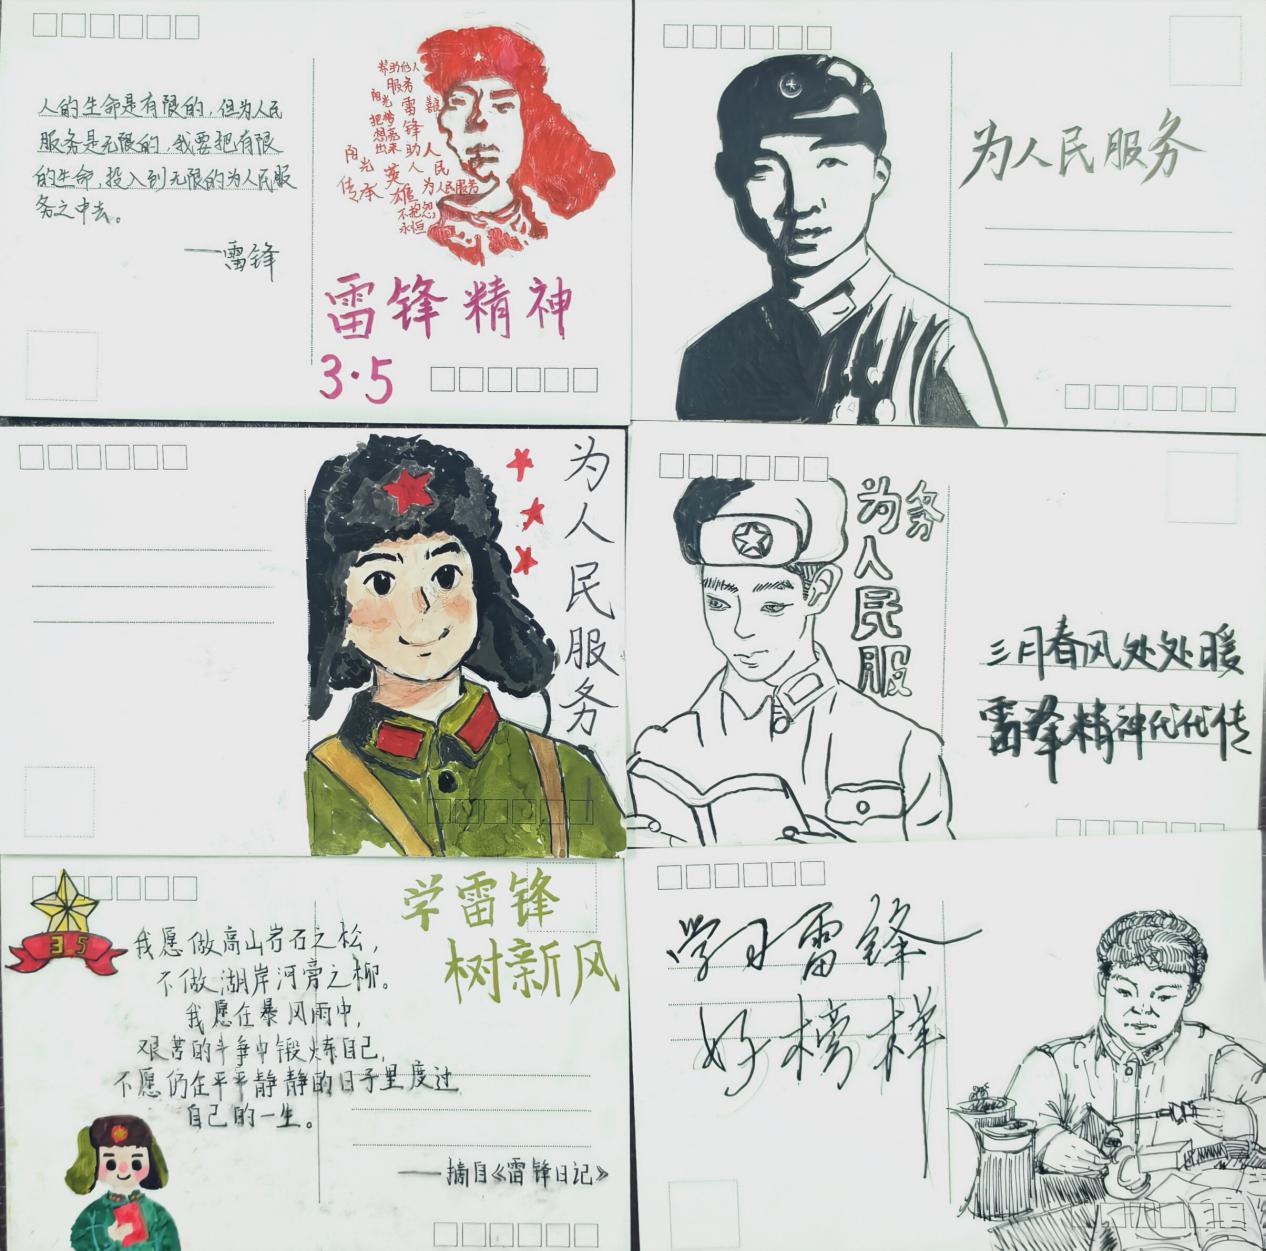 人的生命是有限的，但为人民
服务是无限的，我要把有限
的生命，投入到无限的为人民服
务之中去。
——雷锋
帮助他人
服务
阳光
雷
把梦
想亮
出来
锋
助人
阳光
英
人民
传承
雄
为人民服务
不抱怨
永恒
雷锋精神
3·5
为人民服务
为人民服务
为人民服务
三月春风处处暖
雷锋精神代代传
3 5
学雷锋
树新风
我愿做高山岩石之松，
不做湖岸河旁之柳。
我愿在暴风雨中，
艰苦的斗争中锻炼自己，
不愿仍在平平静静的日子里度过
自己的一生。
——摘自《雷锋日记》
学习雷锋
好榜样